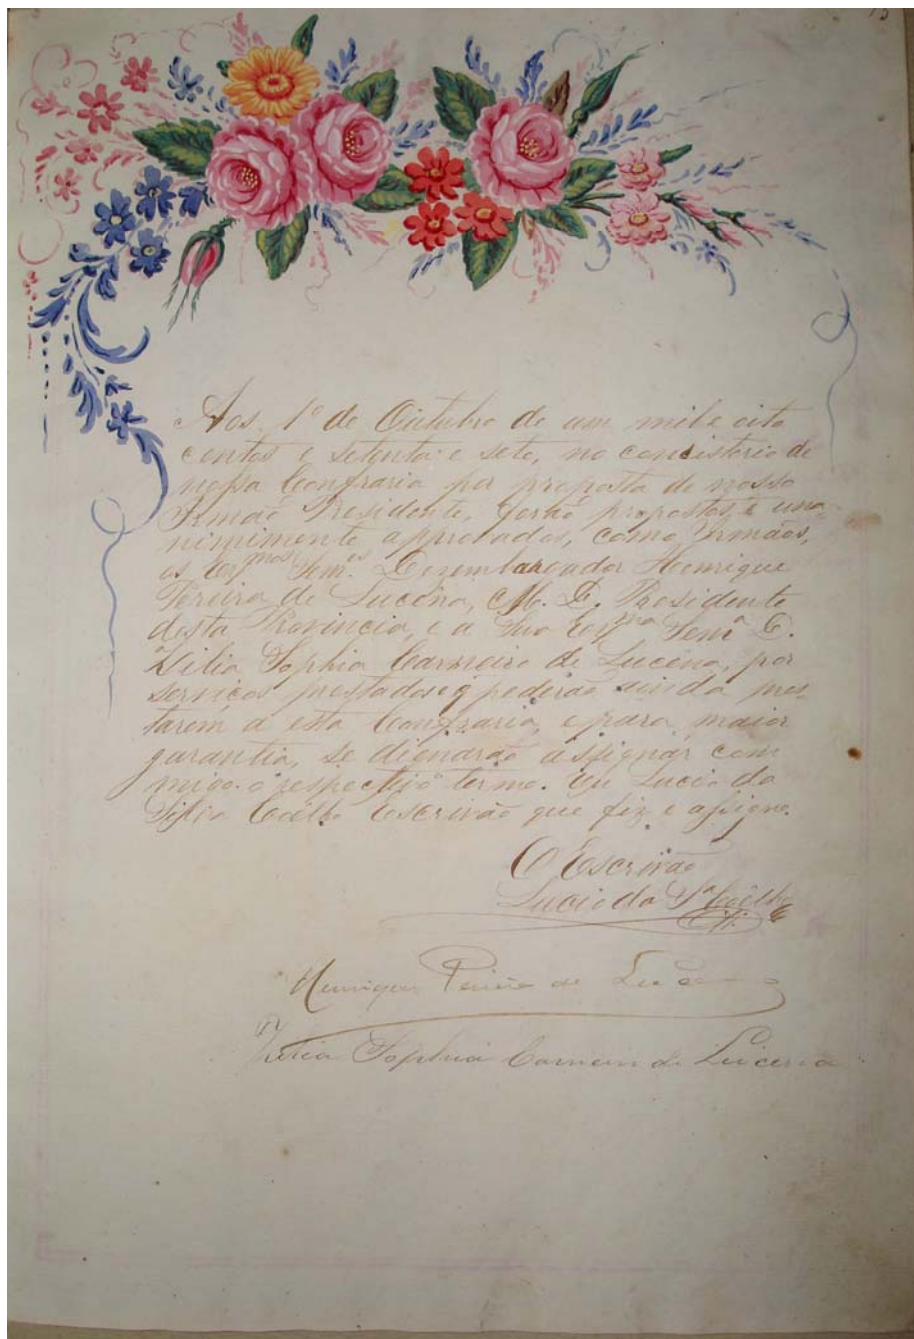 Aos 1º de Outubro de um mil e oito
centos e setenta e sete, no concistorio de
nossa Confraria por proposta de nosso
Irmaõ Presidente, forão propostos e una-
nimimente approvados, como Irmãos,
os Exmos Senres Dezembargador Henrique
Pereira de Lucena, M. D. Presidente
desta Provincia, e a Sua Exma Senrª D.
Zilia Sophia Carneiro de Lucena, por
serviços prestados e q poderão ainda pres-
tarem a esta Confraria, e para maior
garantia, se dignarão assignar com
migo o respectivo termo. Eu Lucio da
Silva Coêlho Escrivão que fiz e assigno.
O Escrivão
Lucio da Sª Coêlho
Henrique Pereira de Lucena
Zilia Sophia Carneiro de Lucena